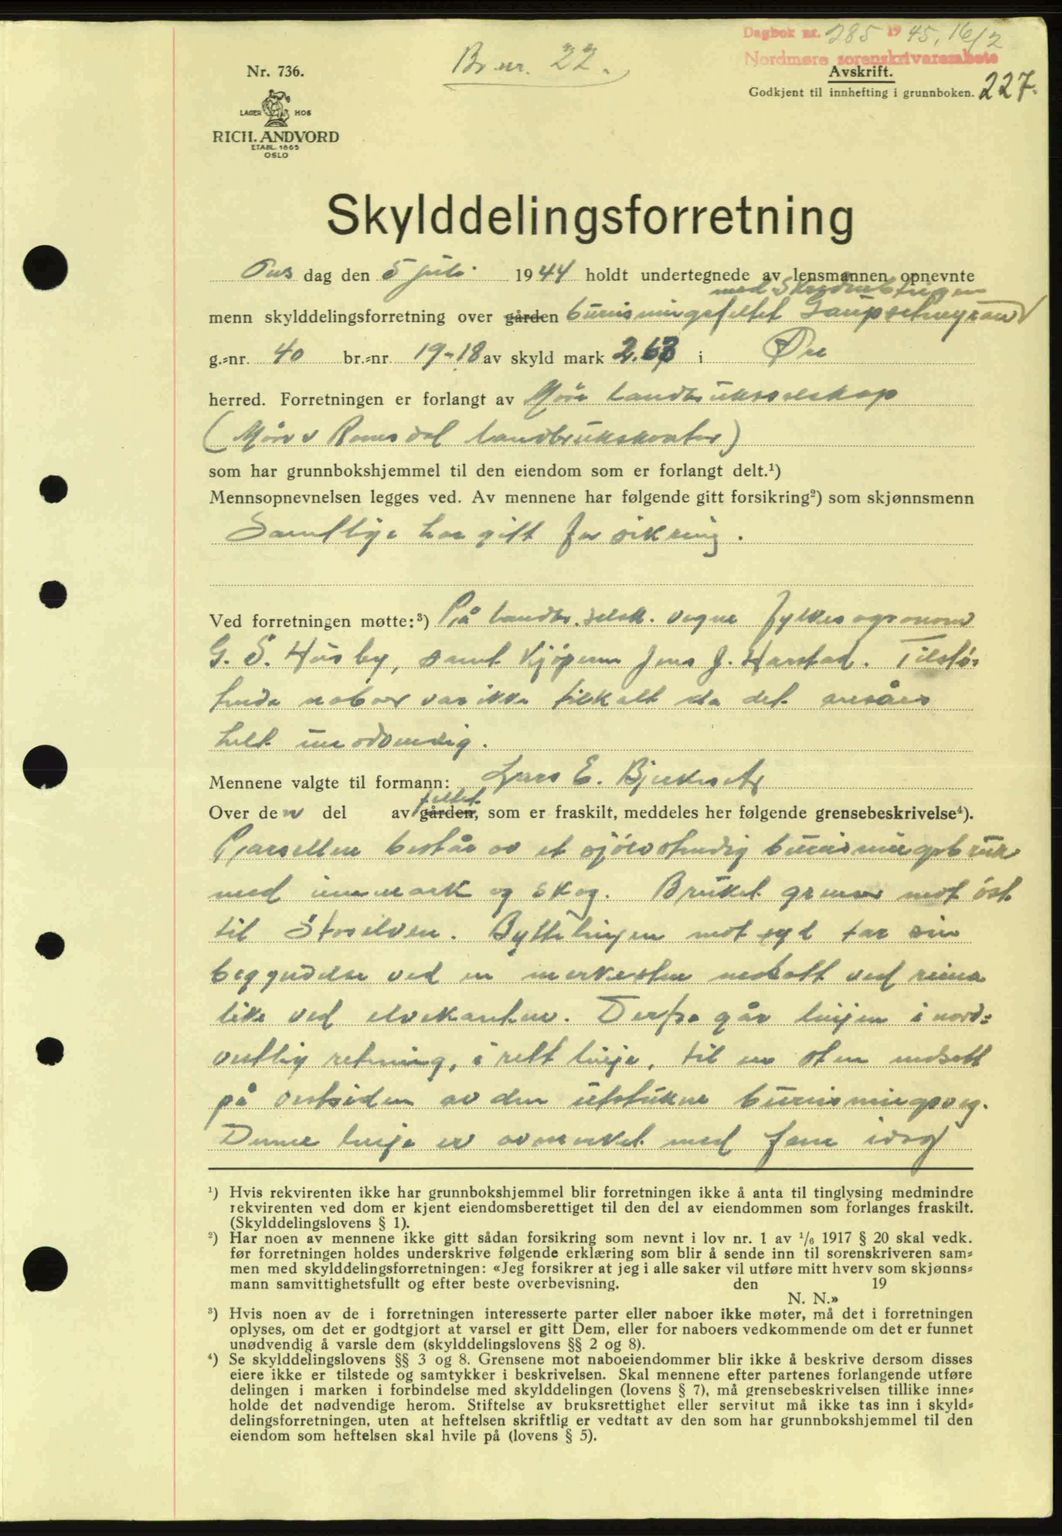 Dagbok nr. 285 1945, 16/2
Nordmøre sorenskriverembete
Br.nr. 22.
Nr. 736.
Avskrift.
Godkjent til innhefting i grunnboken. 227.
LAGER HOS
RICH. ANDVORD
ETABL. 1865
OSLO
Skylddelingsforretning
Ons dag den 5 juli 1944 holdt undertegnede av lensmannen opnevnte
med
menn skylddelingsforretning over gården bureisningsfeltet
g.=nr. 40 br.=nr. 19-18 av skyld mark 2.63 i Øre
herred. Forretningen er forlangt av Møre Landbruksselskap
(Møre & Romsdal landbrukskontor)
som har grunnbokshjemmel til den eiendom som er forlangt delt.¹)
Mennsopnevnelsen legges ved. Av mennene har følgende gitt forsikring²) som skjønnsmenn
Samtlige har gitt forsikring.
Ved forretningen møtte:³) På landbr. selsk. vegne fylkesagronom
G. S. Husby, samt kjøperen Jens J. Harstad. Tilstø-
tende naboer var ikke tilkalt da det ansåes
helt unødvendig.
Mennene valgte til formann: Lars E. Bjerkeset
feltet
Over den del av gården, som er fraskilt, meddeles her følgende grensebeskrivelse⁴).
Parsellen består av et sjølvstendig bureisningsbruk
med innmark og skog. Bruket grenser mot øst
til Storelven. Byttelinjen mot syd tar sin
begyndelse ved en merkesten nedsatt ved
like ved elvekanten. Derfra går linjen i nord=
vestlig retning, i rett linje, til en sten nedsatt
på vestsiden av den utstukne bureisningsveg.
Denne linje er avmerket med fem
¹) Hvis rekvirenten ikke har grunnbokshjemmel blir forretningen ikke å anta til tinglysing medmindre
rekvirenten ved dom er kjent eiendomsberettiget til den del av eiendommen som forlanges fraskilt.
(Skylddelingslovens § 1).
²) Har noen av mennene ikke gitt sådan forsikring som nevnt i lov nr. 1 av ¹/₆ 1917 § 20 skal vedk.
før forretningen holdes underskrive følgende erklæring som blir å sende inn til sorenskriveren sam=
men med skylddelingsforretningen: «Jeg forsikrer at jeg i alle saker vil utføre mitt hverv som skjønns=
mann samvittighetsfullt og efter beste overbevisning. den 19
N. N.»
³) Hvis noen av de i forretningen interesserte parter eller naboer ikke møter, må det i forretningen
oplyses, om det er godtgjort at varsel er gitt Dem, eller for naboers vedkommende om det er funnet
unødvendig å varsle dem (skylddelingslovens §§ 2 og 8).
⁴) Se skylddelingslovens §§ 3 og 8. Grensene mot naboeiendommer blir ikke å beskrive dersom disses
eiere ikke er tilstede og samtykker i beskrivelsen. Skal mennene efter partenes forlangende utføre
delingen i marken i forbindelse med skylddelingen (lovens § 7), må grensebeskrivelsen tillike inne=
holde det nødvendige herom. Stiftelse av bruksrettighet eller servitut må ikke tas inn i skyld=
delingsforretningen, uten at heftelsen skriftlig er vedtatt av den som har grunnbokshjemmel til den
eiendom som heftelsen skal hvile på (lovens § 5).